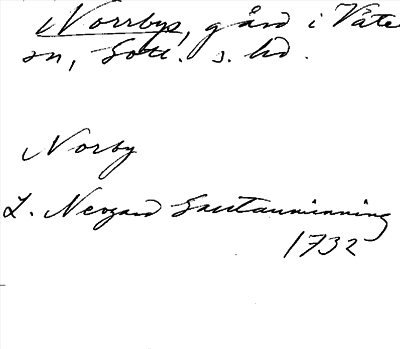 Norrbys, gård i Väte
sn, Gotl. s. hd.
Norby
L. Neogard Gautauminning
1732